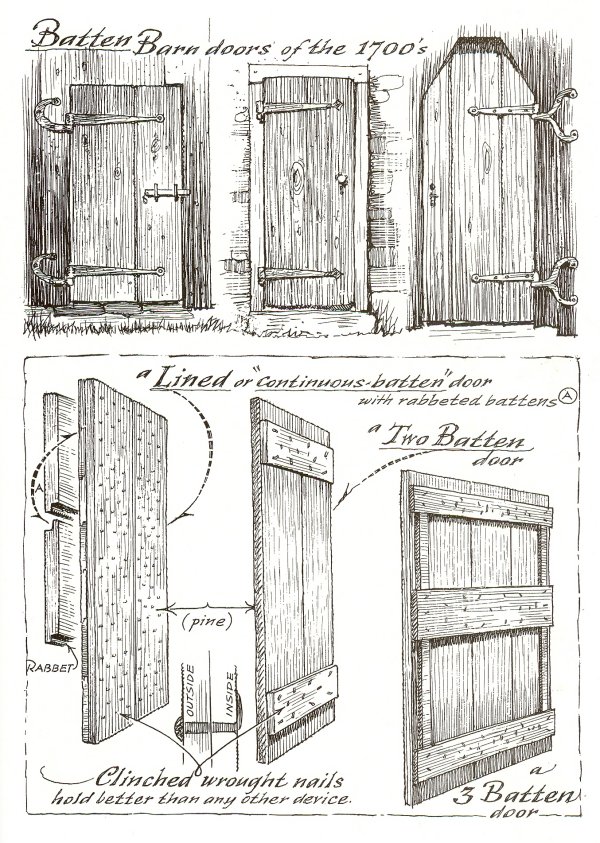 Batten Barn doors of the 1700's
a Lined or "continuous-batten" door
with rabbeted battens Ⓐ
a Two Batten
door
A
(pine)
RABBET
OUTSIDE
INSIDE
Clinched wrought nails
hold better than any other device.
a
3 Batten
door